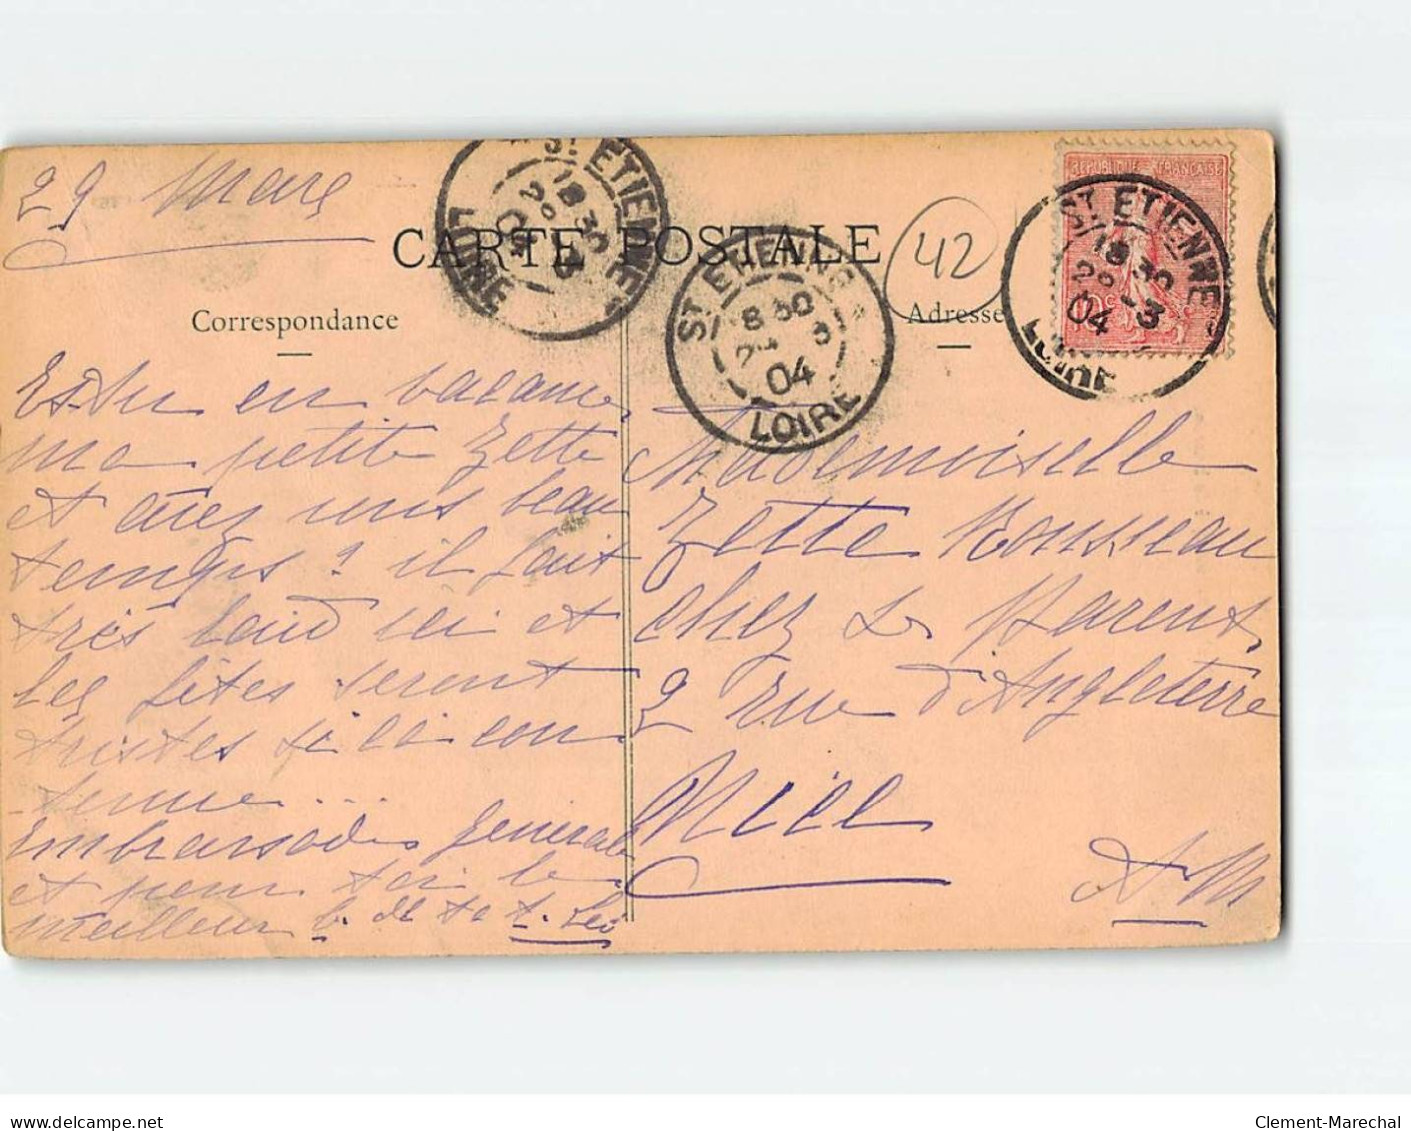 29 Mars
CARTE POSTALE
42
Correspondance
Adresse
REPUBLIQUE FRANCAISE
10c
ST ETIENNE
18 30
29 3
04
LOIRE
ST ETIENNE
8 30
3
04
LOIRE
ST ETIENNE
18 30
3
04
LOIRE
Es-tu en vacance
ma petite Zette
et avez vous beau
temps ? il fait
très laid ici et
les fêtes seront
tristes si cela con
tinue...
Embrassades générales
et pour toi le
meilleur b. de ta t. Léo
Mademoiselle
Zette Rousseau
chez Ses Parents
2 rue d'Angleterre
Nice
A.M
delcampe.net
Clement-Marechal